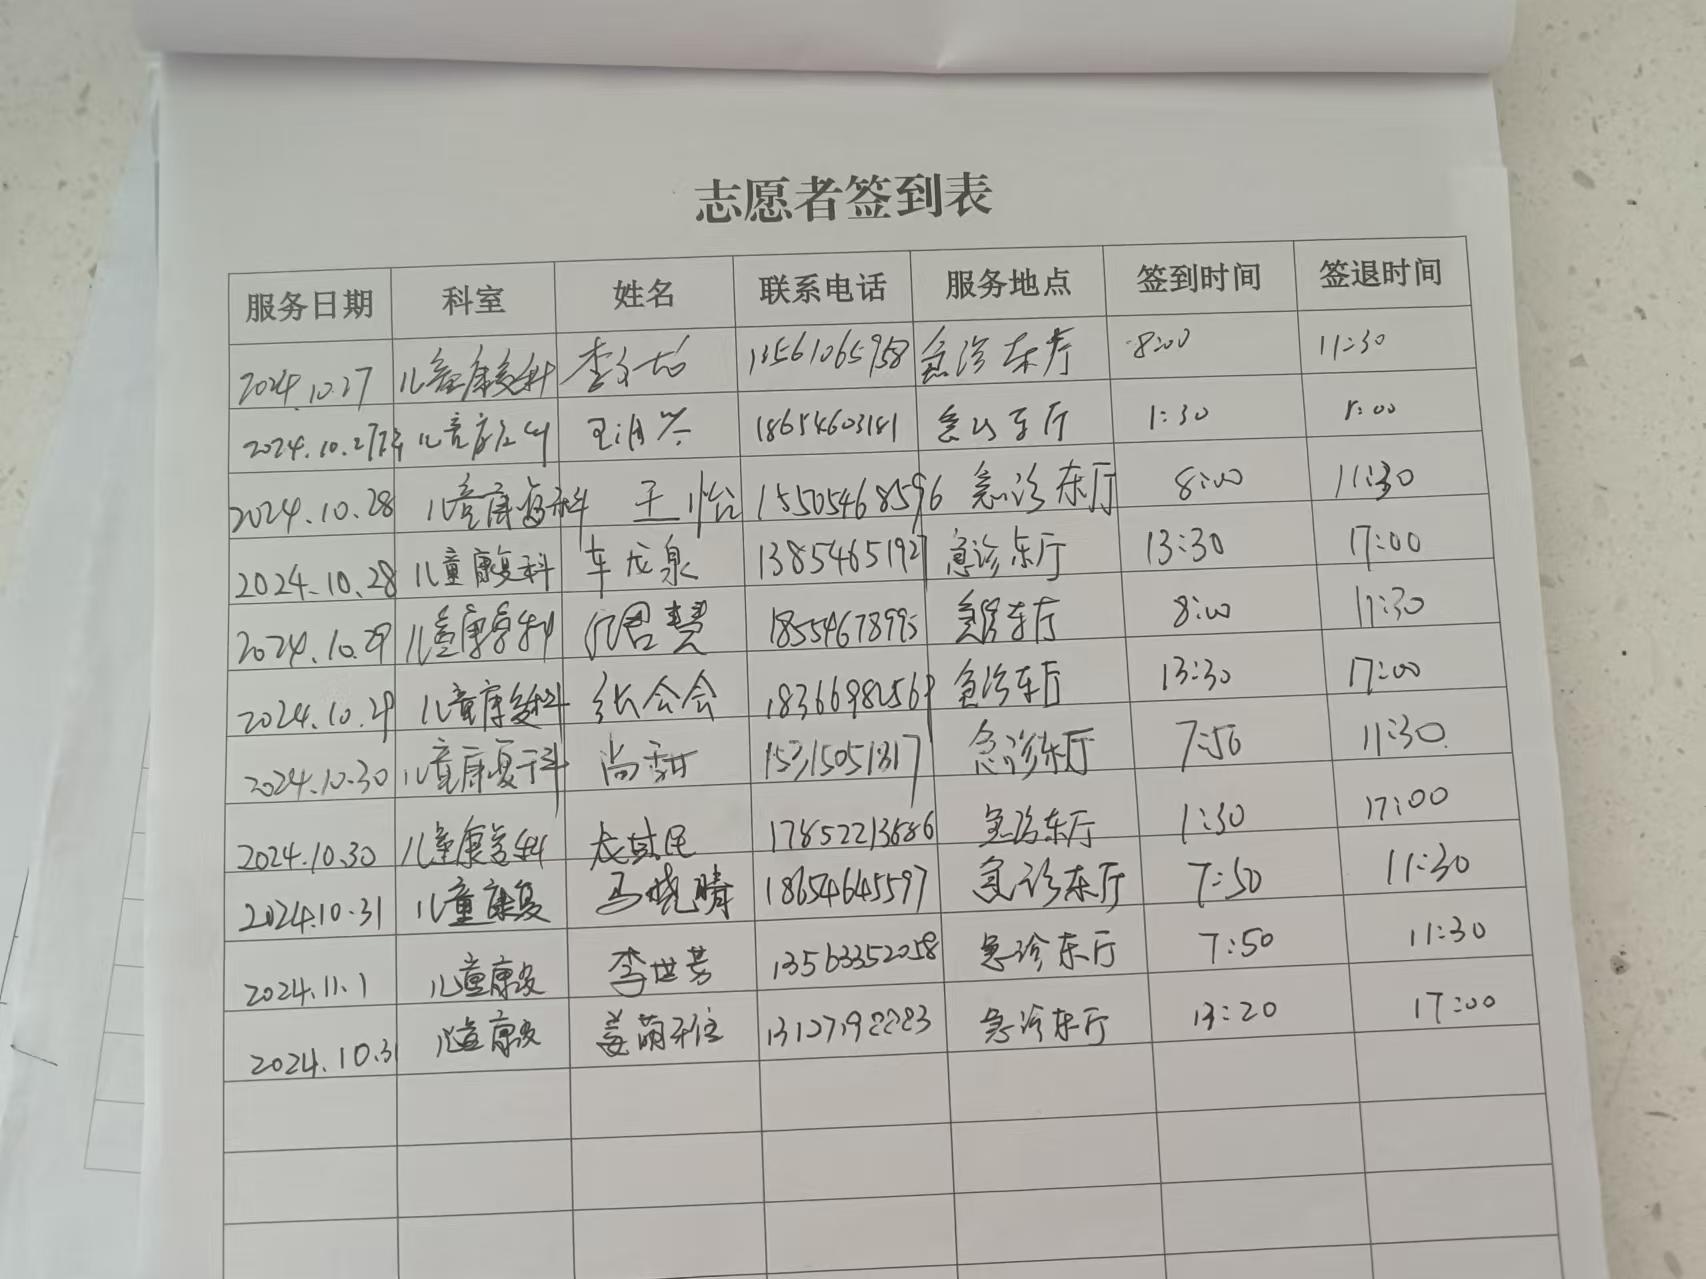 志愿者签到表
服务日期 科室 姓名 联系电话 服务地点 签到时间 签退时间
2024.10.27 儿童康复科 李 13561065958 急诊东厅 8:00 11:30
2024.10.27 儿童康复科 王 18654603181 急诊东厅 1:30 5:00
2024.10.28 儿童康复科 王怡 15505468596 急诊东厅 8:00 11:30
2024.10.28 儿童康复科 车龙泉 13854651927 急诊东厅 13:30 17:00
2024.10.29 儿童康复科 君慧 18554678995 急诊东厅 8:00 11:30
2024.10.29 儿童康复科 张会会 急诊东厅 13:30 17:00
2024.10.30 儿童康复科 尚甜 急诊东厅 7:50 11:30
2024.10.30 儿童康复科 急诊东厅 1:30 17:00
2024.10.31 儿童康复 马晓晴 18654645597 急诊东厅 7:50 11:30
2024.11.1 儿童康复 李世芳 13563352058 急诊东厅 7:50 11:30
2024.10.31 儿童康复 姜萌 急诊东厅 13:20 17:00